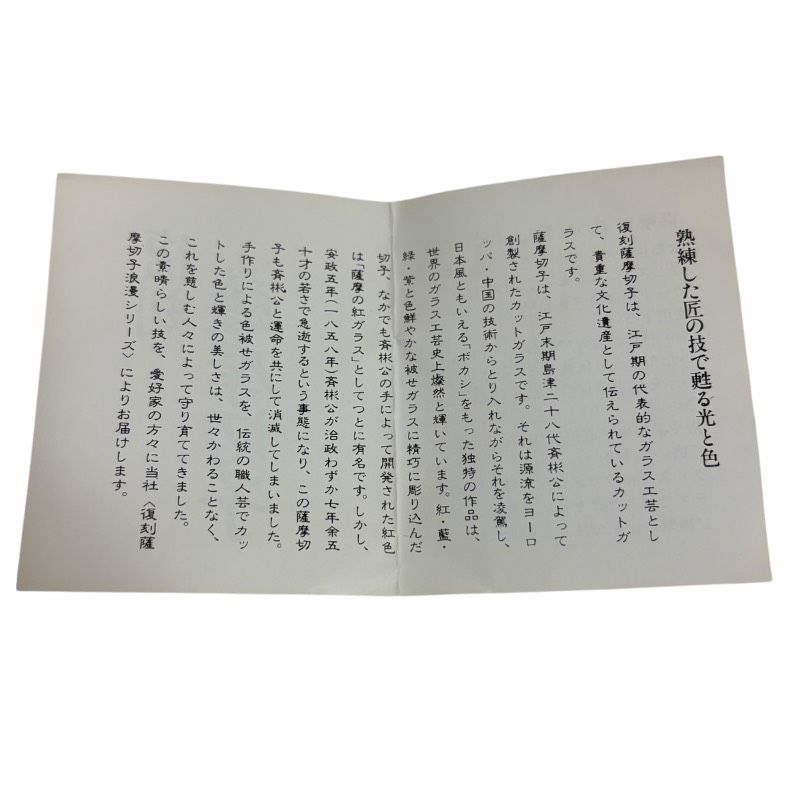 熟練した匠の技で甦る光と色
復刻薩摩切子は、江戸期の代表的なガラス工芸とし
て、貴重な文化遺産として伝えられているカットガ
ラスです。
薩摩切子は、江戸末期島津二十八代斉彬公によって
創製されたカットガラスです。それは源流をヨーロ
ッパ・中国の技術からとり入れながらそれを凌駕し、
日本風ともいえる「ボカシ」をもった独特の作品は、
世界のガラス工芸史上燦然と輝いています。紅・藍・
緑・紫と色鮮やかな被せガラスに精巧に彫り込んだ
切子、なかでも斉彬公の手によって開発された紅色
は「薩摩の紅ガラス」としてつとに有名です。しかし、
安政五年(一八五八年)斉彬公が治政わずか七年余五
十才の若さで急逝するという事態になり、この薩摩切
子も斉彬公と運命を共にして消滅してしまいました。
手作りによる色被せガラスを、伝統の職人芸でカッ
トした色と輝きの美しさは、世々かわることなく、
これを慈しむ人々によって守り育ててきました。
この素晴らしい技を、愛好家の方々に当社〈復刻薩
摩切子浪漫シリーズ〉によりお届けします。